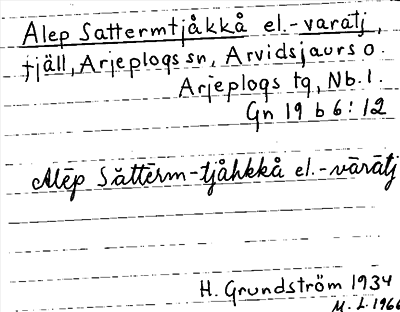 Alep Sattermtjåkkå el.-varatj,
fjäll, Arjeplogs sn, Arvidsjaurs o.
Arjeplogs tg, Nb. l.
Gn 19 b 6:12
Alēp Săttērm-tjåhkkå el.-vāratj
H. Grundström 1934
M. L. 1966